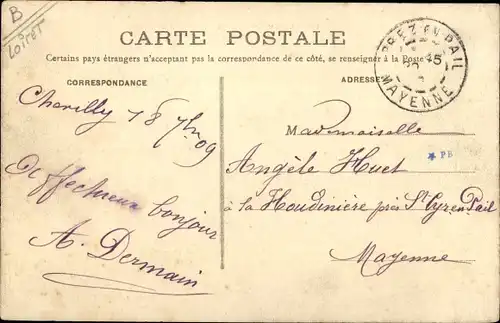 B
Loiret
CARTE POSTALE
Certains pays étrangers n'acceptant pas la correspondance de ce côté, se renseigner à la Poste
CORRESPONDANCE
ADRESSE
PREZ EN PAIL
MAYENNE
Chevilly 18 7bre 09
Affectueux bonjour
A. Dermain
Mademoiselle
PB
Angèle Huet
à la Houdinière près St Cyr en Pail
Mayenne